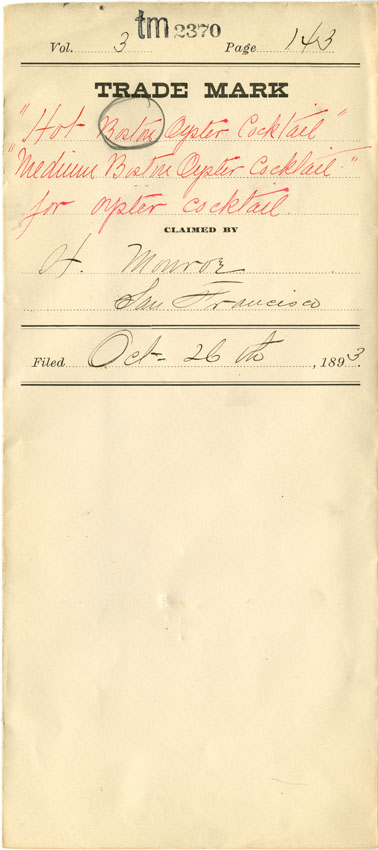 tm 2370
Vol. 3 Page 143
TRADE MARK
"Hot Boston Oyster Cocktail"
"Medium Boston Oyster Cocktail."
for oyster cocktail.
CLAIMED BY
H. Monroe
San Francisco
Filed Oct- 26 th, 1893.